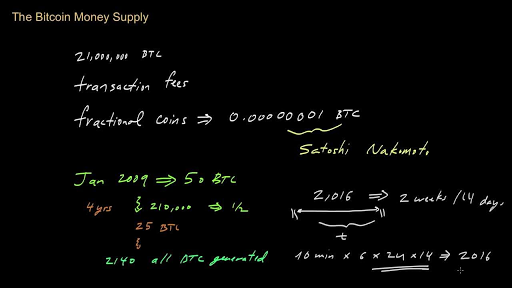 The Bitcoin Money Supply
21,000,000 BTC
transaction fees
fractional coins ⇒ 0.00000001 BTC
Satoshi Nakomoto
Jan 2009 ⇒ 50 BTC
4 yrs { 210,000 ⇒ 1/2
25 BTC
{
2140 all BTC generated
2,016 ⇒ 2 weeks / 14 days
t
10 min × 6 × 24 × 14 ⇒ 2016